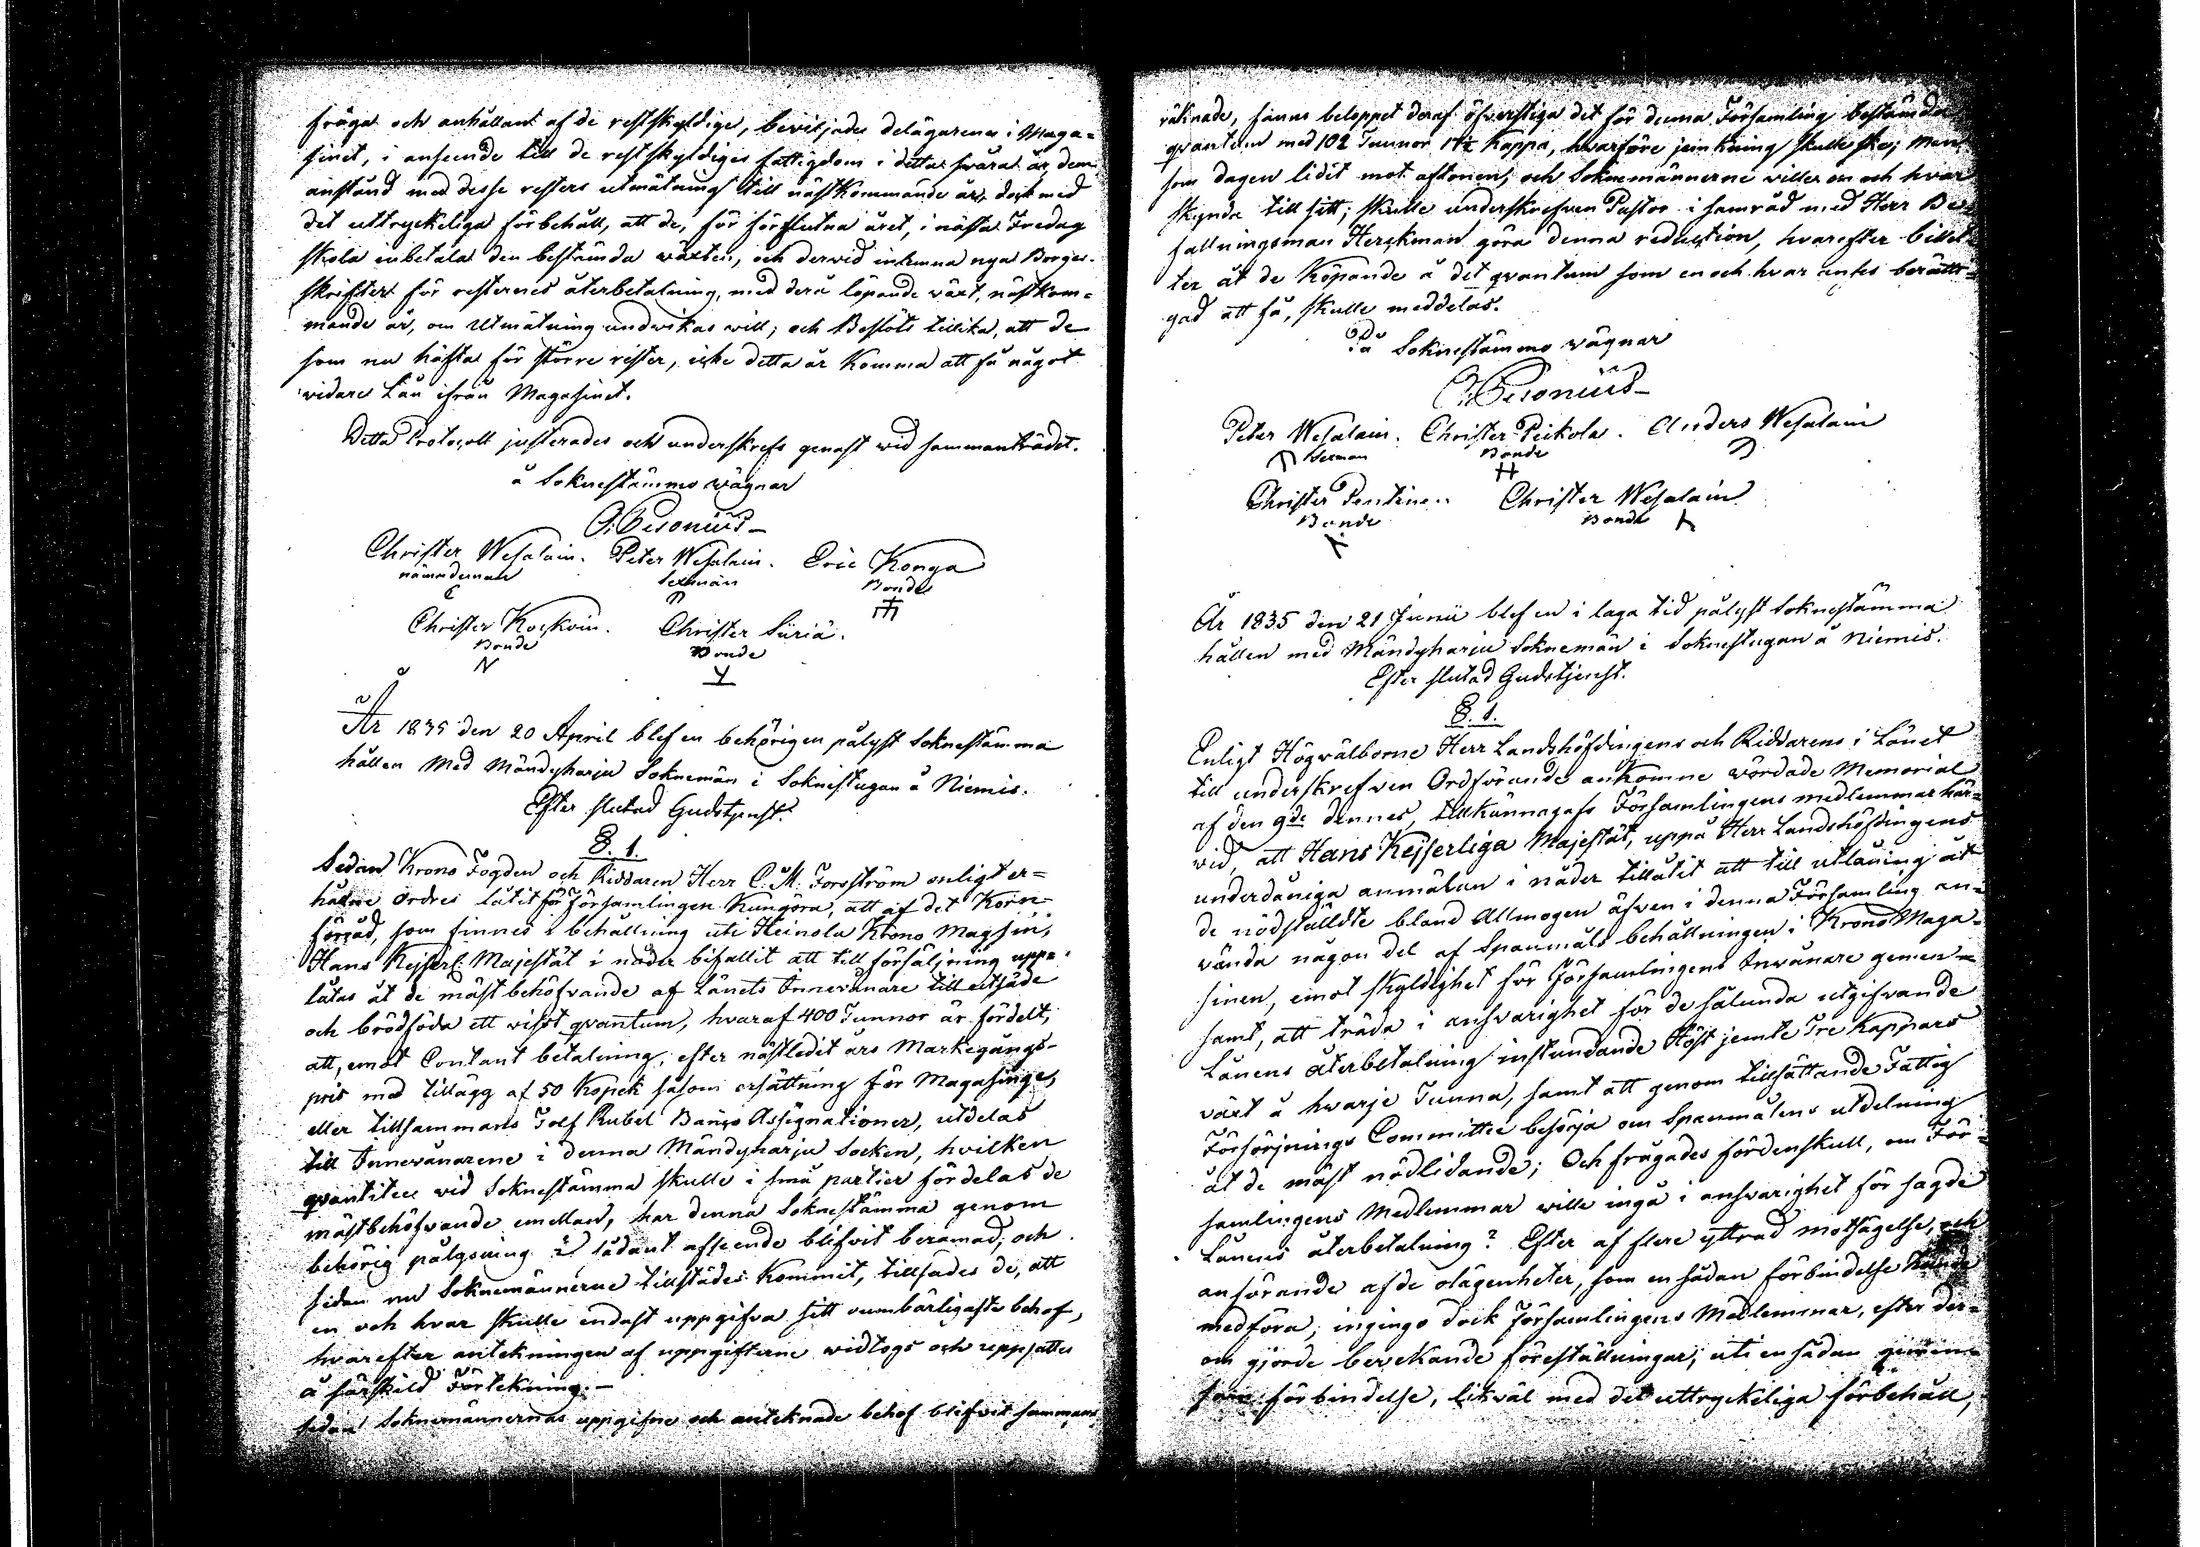 fråga och anhållan af de restskyldige, beviljades delägarena i Maga=
sinet, i anseende till de restskyldiges fattigdom i detta svåra år, dem
anstånd med desse resters utmätning till nästkommande år, dock med
det uttryckeliga förbehåll, att de, för förflutna året, i nästa Fredag
skola inbetala den bestämda växten, och dervid inlemna nya Borgns-
skrifter för resternes återbetalning, med derå löpande växt, nästkom=
mande år, om Utmätning undvikas will; och Beslöts tillika, att de
som nu häfta för större rester, icke detta år Komma att få något
vidare Lån ifrån Magasinet.
Detta Protocoll justerades och underskrefs genast wid sammanträdet.
å Soknestämmo wägnar
G. Pesonius
Christer Wesalain. Peter Wesalain. Eric Konga
nämndeman Sexman Bonde
Christer Koskoin. Christer Siiriä.
Bonde Bonde
År 1835 den 20 April blef en behörigen pålyst Soknestämma
hållen Med Mändyharju Soknemän i Soknestugan å Niemis.
Efter slutad Gudstjenst.
§. 1.
Sedan Krono Fogden och Riddaren Herr C. M. Forsström enligt er=
hållne ordres låtit för Församlingen Kungöra, att af det Korn-
förråd, som finnes i behållning uti Heinola Krono Magsin,
Hans Kejserl. Majestät i nåder bifallit att till försäljning upp=
låtas åt de mäst behöfvande af Länets Innevånare till utsäde
och brödföda ett wisst qvantum, hvaraf 400 Tunnor är fördelt,
att, emot Contant betalning, efter nästledit års Markegångs-
pris med tillägg af 50 Kopek såsom ersättning för Magasinet,
eller tillsammans Tolf Rubel Banco Assignationer, utdelas
till Innevånarene i denna Mändyharju Socken, hvilken
qvantitee vid Soknestämma skulle i små partier fördelas de
mästbehöfvande emellan, har denna Soknestämma genom
behörig pålysning i sådant afseende blifvit beramad; och
sedan nu Soknemännerne tillstädes kommit, tillsades de, att
en och hvar skulle endast uppgifva sitt oumbärligaste behof,
hvarefter antekningen af uppgifterne widtogs och uppsattes
å särskild Förtekning.—
Sedan Soknemännernas uppgifne och anteknade behof blifvit samman-
räknade, fanns beloppet deraf öfverstiga det för denna Församling bestämda
qvantum med 102 Tunnor 17½ Kappa, hvarföre jemkning skulle ske; Men
som dagen lidit mot aftonen, och Soknemännerne ville en och hvar
skynda till sitt; skulle underskrefven Pastor i samråd med Herr Be=
fallningsman Herckman göra denna reduction, hvarefter billet=
ter åt de Köpande å det qvantum som en och hvar antes berätti=
gad att få, skulle meddelas.
På Soknestämmo wägnar
G. Pesonius
Peter Wesalain. Christer Peikola. Anders Wesalain
Sexman Bonde
Christer Pentinen. Christer Wesalain
Bonde Bonde
År 1835 den 21 Junii blef en i laga tid pålyst Soknestämma
hållen med Mändyharju Soknemän i Soknestugan å Niemis.
Efter slutad Gudstjenst.
§. 1.
Enligt Högvälborne Herr Landshöfdingens och Riddarens i Länet
till underskrefven Ordförande ankomne wördade Memorial
af den 9de dennes, tillkännagafs Församlingens medlemmar här=
vid, att Hans Kejserliga Majestät, uppå Herr Landshöfdingens
underdåniga anmälan i nåder tillåtit att till utlåning åt
de nödställdte bland Allmogen äfven i denna Församling an=
vända någon del af Spanmåls behållningen i Krono Maga=
sinen, emot skyldighet för Församlingens Invånare gemen=
samt, att träda i answarighet för de sålunda utgifvande
Lånens återbetalning instundande Höst jemte Tre Kappars
växt å hwarje Tunna, samt att genom tillsättande Fattig
Försörjnings Committee besörja om Spanmålens utdelning
åt de mäst nödlidande; Och frågades fördenskull, om För=
samlingens Medlemmar wille ingå i answarighet för sagde
Lånens återbetalning? Efter af flere yttrad motsägelse, och
anförande af de olägenheter, som en sådan förbindelse kunde
medföra, ingingo dock Församlingens Medlemmar, efter der=
om gjorde bevekande föreställningar, uti en sådan gemen=
sam förbindelse, likväl med det uttryckeliga förbehåll,